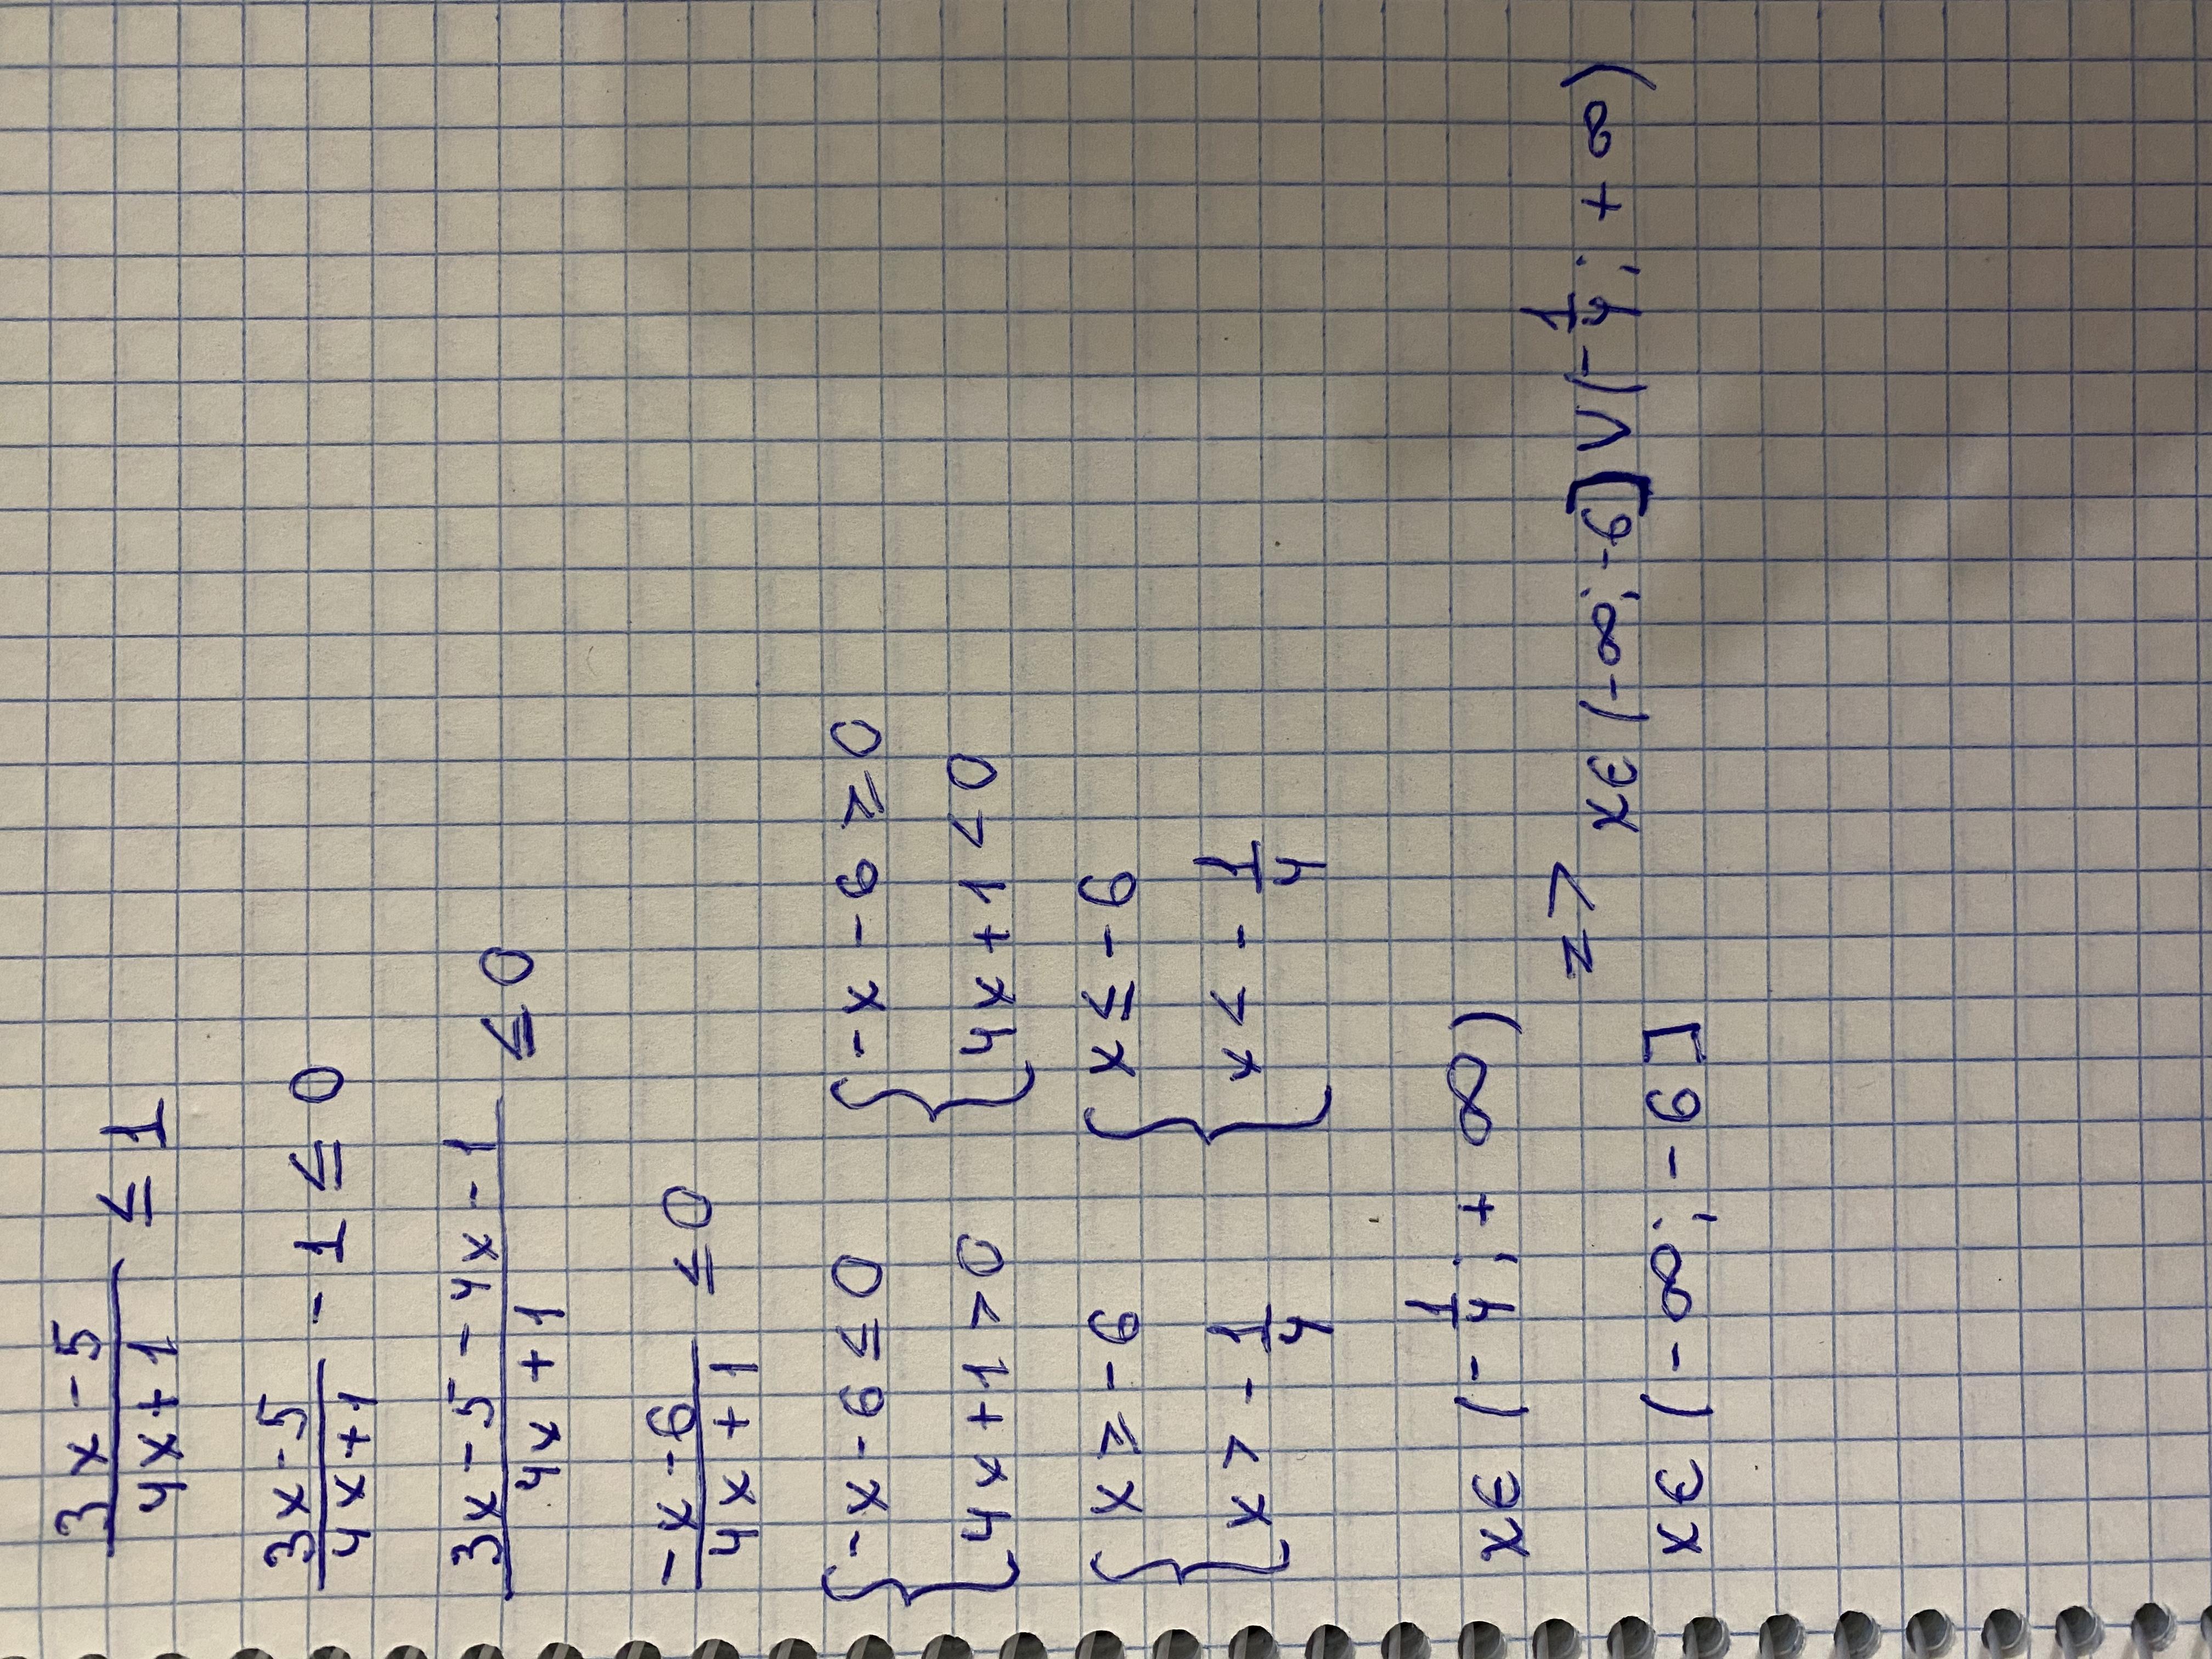 (3x-5)/(4x+1) ≤ 1
(3x-5)/(4x+1) - 1 ≤ 0
(3x-5-4x-1)/(4x+1) ≤ 0
(-x-6)/(4x+1) ≤ 0
{ -x-6 ≤ 0 { -x-6 ≥ 0
4x+1 > 0 4x+1 < 0
{ x ≥ -6 { x ≤ -6
x > -1/4 x < -1/4
x ∈ (-1/4; +∞)
=> x ∈ (-∞; -6] ∪ (-1/4; +∞)
x ∈ (-∞; -6]